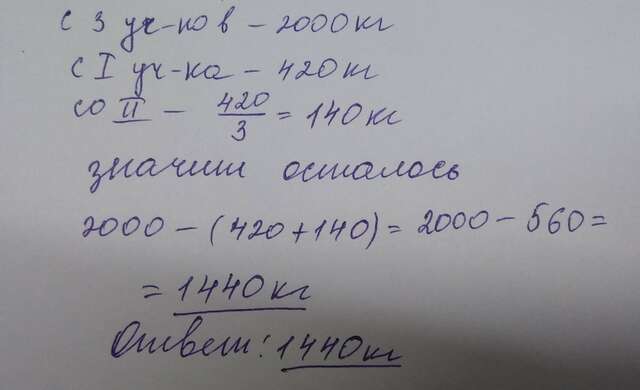 с 3 уч-ков – 2000кг
с I уч-ка – 420кг
со II – 420/3 = 140кг
значит осталось
2000 – (420+140) = 2000 – 560 =
= 1440кг
Ответ: 1440кг